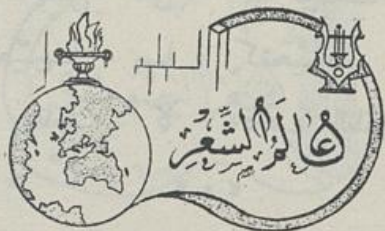 عَالَمُ الشِّعْرِ